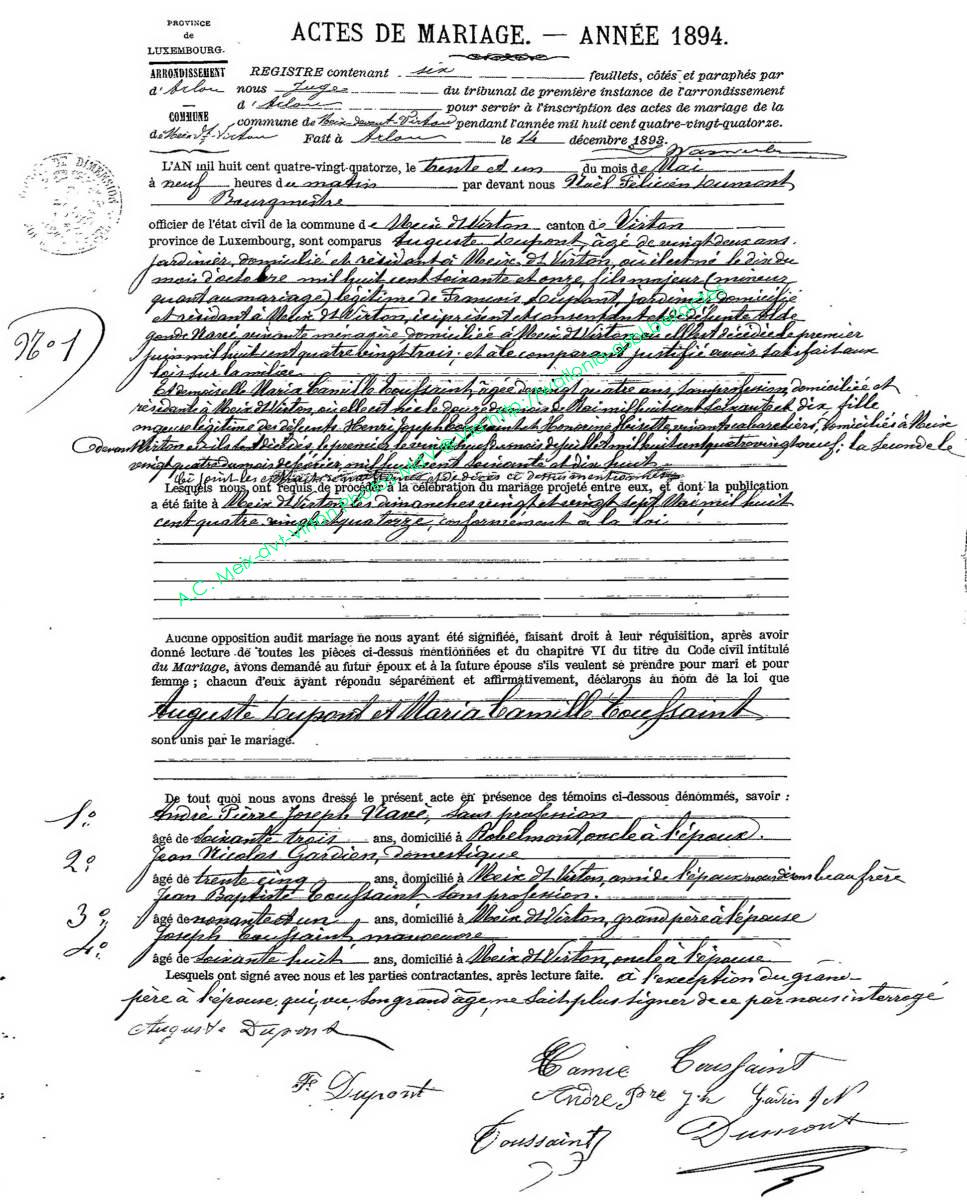 PROVINCE
de
LUXEMBOURG.
ARRONDISSEMENT
d'Arlon
COMMUNE
de Meix dt Virton
ACTES DE MARIAGE. — ANNÉE 1894.
REGISTRE contenant six feuillets, côtés et paraphés par
nous Juge du tribunal de première instance de l'arrondissement
d'Arlon pour servir à l'inscription des actes de mariage de la
commune de Meix devant Virton pendant l'année mil huit cent quatre-vingt-quatorze.
Fait à Arlon le 14 décembre 1893.
L'AN mil huit cent quatre-vingt-quatorze, le trente et un du mois de Mai
à neuf heures du matin par devant nous Noël Félicien Dumont
Bourgmestre
officier de l'état civil de la commune de Meix dt Virton canton de Virton
province de Luxembourg, sont comparus Auguste Dupont, âgé de vingt deux ans.
jardinier, domicilié et résidant à Meix dt Virton, où il est né le dix du
mois d'octobre mil huit cent soixante et onze, fils majeur (mineur
quant au mariage) légitime de François Dupont, jardinier domicilié
et résidant à Meix dt Virton, ici présent et consentant et de défunte
Navé vivante ménagère domicilié à Meix dt Virton où elle est décédée le premier
juin mil huit cent quatre vingt trois; et a le comparant justifié avoir satisfait aux
lois sur la milice
N° 1
Et demoiselle Maria Camille Toussaint, âgée de vingt quatre ans, sans profession domiciliée et
résidante à Meix dt Virton, où elle est née le douze du mois de Mai mil huit cent soixante et dix fille
majeure légitime des défunts Henri Joseph Toussaint et Honorine vivant cabaretiers, domiciliés à Meix
devant Virton où ils sont décédés le premier le vingt neuf du mois de juillet mil huit cent quatre vingt neuf; la seconde le
vingt quatre du mois de février mil huit cent soixante et dix huit
Ci joint les extraits et de décès ci dessus mentionnés
Lesquels nous ont requis de procéder à la célébration du mariage projeté entre eux, et dont la publication
a été faite à Meix dt Virton les dimanches vingt et vingt sept Mai mil huit
cent quatre vingt quatorze, conformément à la loi
A.C. Meix-dvt-Virton
Aucune opposition audit mariage ne nous ayant été signifiée, faisant droit à leur réquisition, après avoir
donné lecture de toutes les pièces ci-dessus mentionnées et du chapitre VI du titre du Code civil intitulé
du Mariage, avons demandé au futur époux et à la future épouse s'ils veulent se prendre pour mari et pour
femme ; chacun d'eux ayant répondu séparément et affirmativement, déclarons au nom de la loi que
Auguste Dupont et Maria Camille Toussaint
sont unis par le mariage.
De tout quoi nous avons dressé le présent acte en présence des témoins ci-dessous dénommés, savoir :
1° André Pierre Joseph Navé, sans profession
âgé de soixante trois ans, domicilié à Robelmont, oncle à l'époux.
2° Jean Nicolas Gardien, domestique
âgé de trente cinq ans, domicilié à Meix dt Virton, ami de l'époux nous disons beau frère
3° Jean Baptiste Toussaint sans profession.
âgé de nonante et un ans, domicilié à Meix dt Virton, grand père à l'épouse
4° Joseph Toussaint manoeuvre
âgé de soixante huit ans, domicilié à Meix dt Virton, oncle à l'épouse
Lesquels ont signé avec nous et les parties contractantes, après lecture faite. à l'exception du grand
père à l'épouse qui, vu son grand âge, ne sait plus signer de ce par nous interrogé
Auguste Dupont
Camie Toussaint
F. Dupont
André Pre
Toussaint J
Dumont